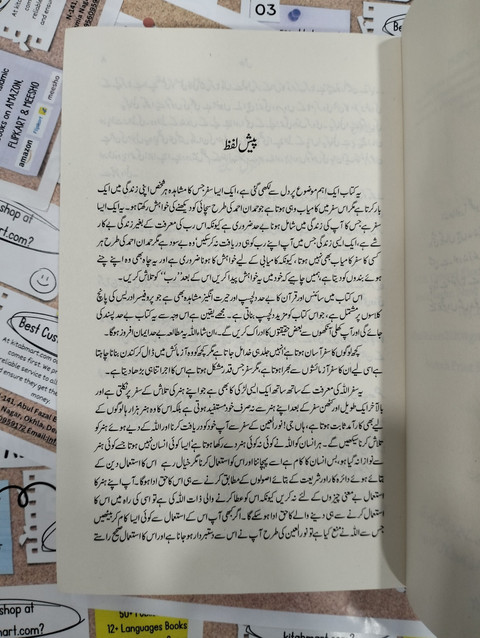 03
پیش لفظ
یہ کتاب ایک اہم موضوع پر دل سے لکھی گئی ہے، ایک ایسا سفر جس کا مشاہدہ ہر شخص اپنی زندگی میں ایک
بار کرتا ہے مگر اس سفر میں کامیاب وہی ہوتا ہے جو حمدان احمد کی طرح سچائی کو دیکھنے کی خواہش رکھتا ہو۔ یہ ایک ایسا
سفر ہے جس کا آپ کی زندگی میں شامل ہونا بے حد ضروری ہے کیونکہ اس رب کی معرفت کے بغیر زندگی بے کار
شے ہے، ایک ایسی زندگی جس میں آپ اپنے رب کو ہی دریافت نہ کر سکیں وہ بے سود ہے مگر حمدان احمد کی طرح ہر
کسی کا سفر کامیاب بھی نہیں ہوتا، کیونکہ کامیابی کے لیے خواہش کا ہونا ضروری ہے اور یہ چاہ بھی وہ اپنے چنے
ہوئے بندوں کو دیتا ہے، ہمیں چاہیے کہ خود میں یہ خواہش پیدا کریں اس کے بعد "رب" کو تلاش کریں۔
اس کتاب میں سائنس اور قرآن کا بے حد دلچسپ اور حیرت انگیز مشاہدہ بھی ہے جو پروفیسر اور یس کی پانچ
کلاسوں پر مشتمل ہے، جو اس کتاب کو مزید دلچسپ بناتی ہے۔ مجھے یقین ہے اس وجہ سے یہ کتاب بے حد پسند کی
جائے گی اور آپ کھلی آنکھوں سے بعض حقیقتوں کا ادراک کریں گے۔ ان شاءاللہ یہ مطالعہ بے حد ایمان افروز ہوگا۔
کچھ لوگوں کا سفر آسان ہوتا ہے انہیں جلد ہی خدا مل جاتا ہے مگر کچھ کو وہ آزمائش میں ڈال کر کندن بنانا چاہتا
ہے اسی لیے ان کا سفر آزمائشوں سے بھرا ہوتا ہے، مگر سفر جس قدر مشکل ہوتا ہے اس کا اجر اتنا ہی بڑھا دیتا ہے۔
یہ سفر اللہ کی معرفت کے ساتھ ساتھ ایک ایسی لڑکی کا بھی ہے جو اپنے ہنر کی تلاش کے سفر پر نکلتی ہے اور
بالآخر ایک طویل اور کٹھن سفر کے بعد اپنے ہنر سے نہ صرف خود مستفید ہوتی ہے بلکہ اس کا وہ ہنر ہزار ہا لوگوں کے
لیے بھی کارآمد ثابت ہوتا ہے، ہاں جی! نور العین کے سفر سے آپ خود کو دریافت کرنا اور اللہ کے دیے ہوئے ہنر کو
تلاش کرنا سیکھیں گے۔ ہر انسان کو اللہ نے کوئی نہ کوئی ہنر دے رکھا ہوتا ہے، ایسا کوئی انسان نہیں ہوتا جسے کوئی ہنر
سے نوازا نہ گیا ہو، بس انسان کا کام ہے اسے پہچاننا اور اس کو استعمال کرنا مگر خیال رہے اس کا استعمال دین کے
بتائے ہوئے دائرہ کار اور شریعت کے بتائے اصولوں کے مطابق کرنے سے ہی اس کا حق ادا ہوگا۔ آپ اپنے ہنر کا
استعمال بے معنی چیزوں کے لئے نہ کریں کیونکہ اس کو عطا کرنے والی ذات اللہ کی ہے تو اسی کی راہ میں اس کا
استعمال کرنے سے ہی دینے والے کا حق ادا ہو سکے گا۔ اگر کبھی آپ اس کے استعمال سے کوئی ایسا کام کر بیٹھیں
جس سے اللہ نے منع کیا ہے تو نور العین کی طرح آپ نے اس سے دستبردار ہو جانا ہے اور اس کا استعمال صحیح راستے
ooks on AMAZON,
FLIPKART & MEESHO
meesho
amazon
shop at
com?
Best Cus
kitabmart.com
comes first. We pr
reliable service to al
ensure they get the
money.
N-141, Abul Fazal E
Nagar, Okhla, De
shop at
mart.com?
12+ Languages Books
kitabmart.com?